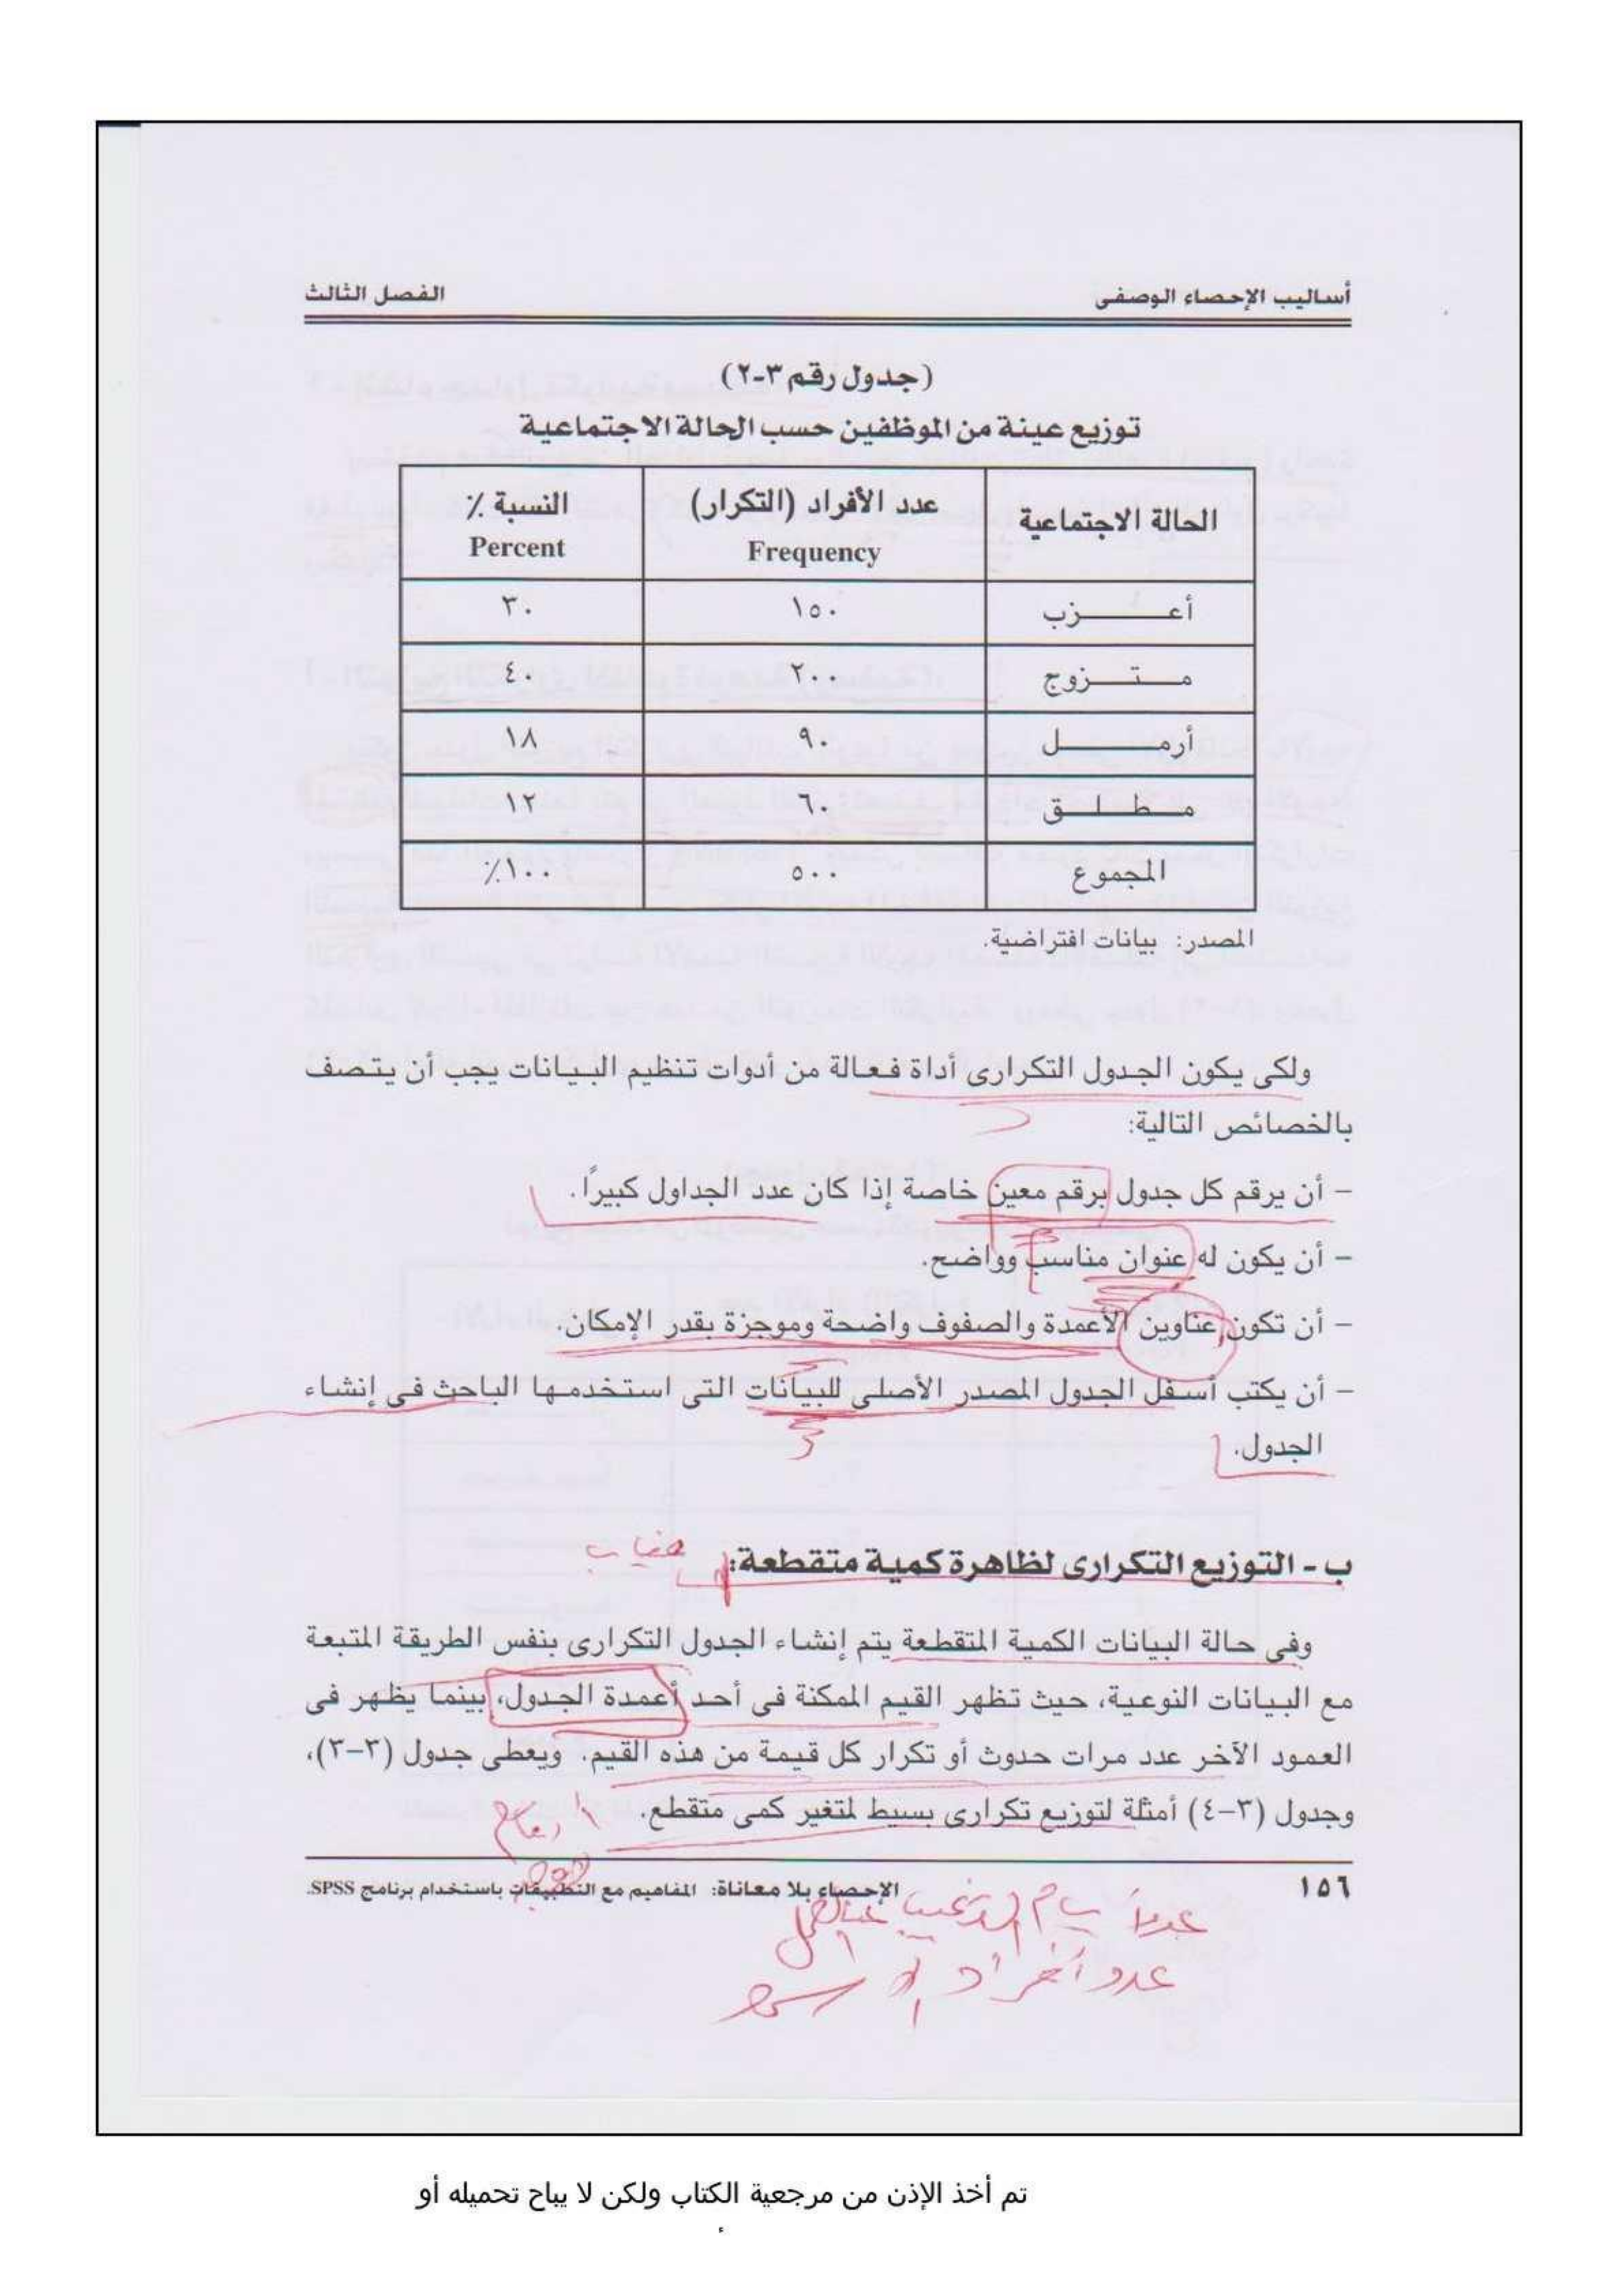 أساليب الإحصاء الوصفى
الفصل الثالث
(جدول رقم ٣-٢)
توزيع عينة من الموظفين حسب الحالة الاجتماعية
الحالة الاجتماعية عدد الأفراد (التكرار) Frequency النسبة ٪ Percent
أعزب ١٥٠ ٣٠
متزوج ٢٠٠ ٤٠
أرمل ٩٠ ١٨
مطلق ٦٠ ١٢
المجموع ٥٠٠ ١٠٠٪
المصدر: بيانات افتراضية.
ولكى يكون الجدول التكرارى أداة فعالة من أدوات تنظيم البيانات يجب أن يتصف
بالخصائص التالية:
– أن يرقم كل جدول برقم معين خاصة إذا كان عدد الجداول كبيرًا.
– أن يكون له عنوان مناسب وواضح.
– أن تكون عناوين الأعمدة والصفوف واضحة وموجزة بقدر الإمكان.
– أن يكتب أسفل الجدول المصدر الأصلى للبيانات التى استخدمها الباحث فى إنشاء
الجدول.
ب - التوزيع التكرارى لظاهرة كمية متقطعة:
وفى حالة البيانات الكمية المتقطعة يتم إنشاء الجدول التكرارى بنفس الطريقة المتبعة
مع البيانات النوعية، حيث تظهر القيم الممكنة فى أحد أعمدة الجدول، بينما يظهر فى
العمود الآخر عدد مرات حدوث أو تكرار كل قيمة من هذه القيم. ويعطى جدول (٣-٣)،
وجدول (٣-٤) أمثلة لتوزيع تكرارى بسيط لمتغير كمى متقطع.
١٥٦
الإحصاء بلا معاناة: المفاهيم مع التطبيقات باستخدام برنامج SPSS.
عدد أفراد
تم أخذ الإذن من مرجعية الكتاب ولكن لا يباح تحميله أو